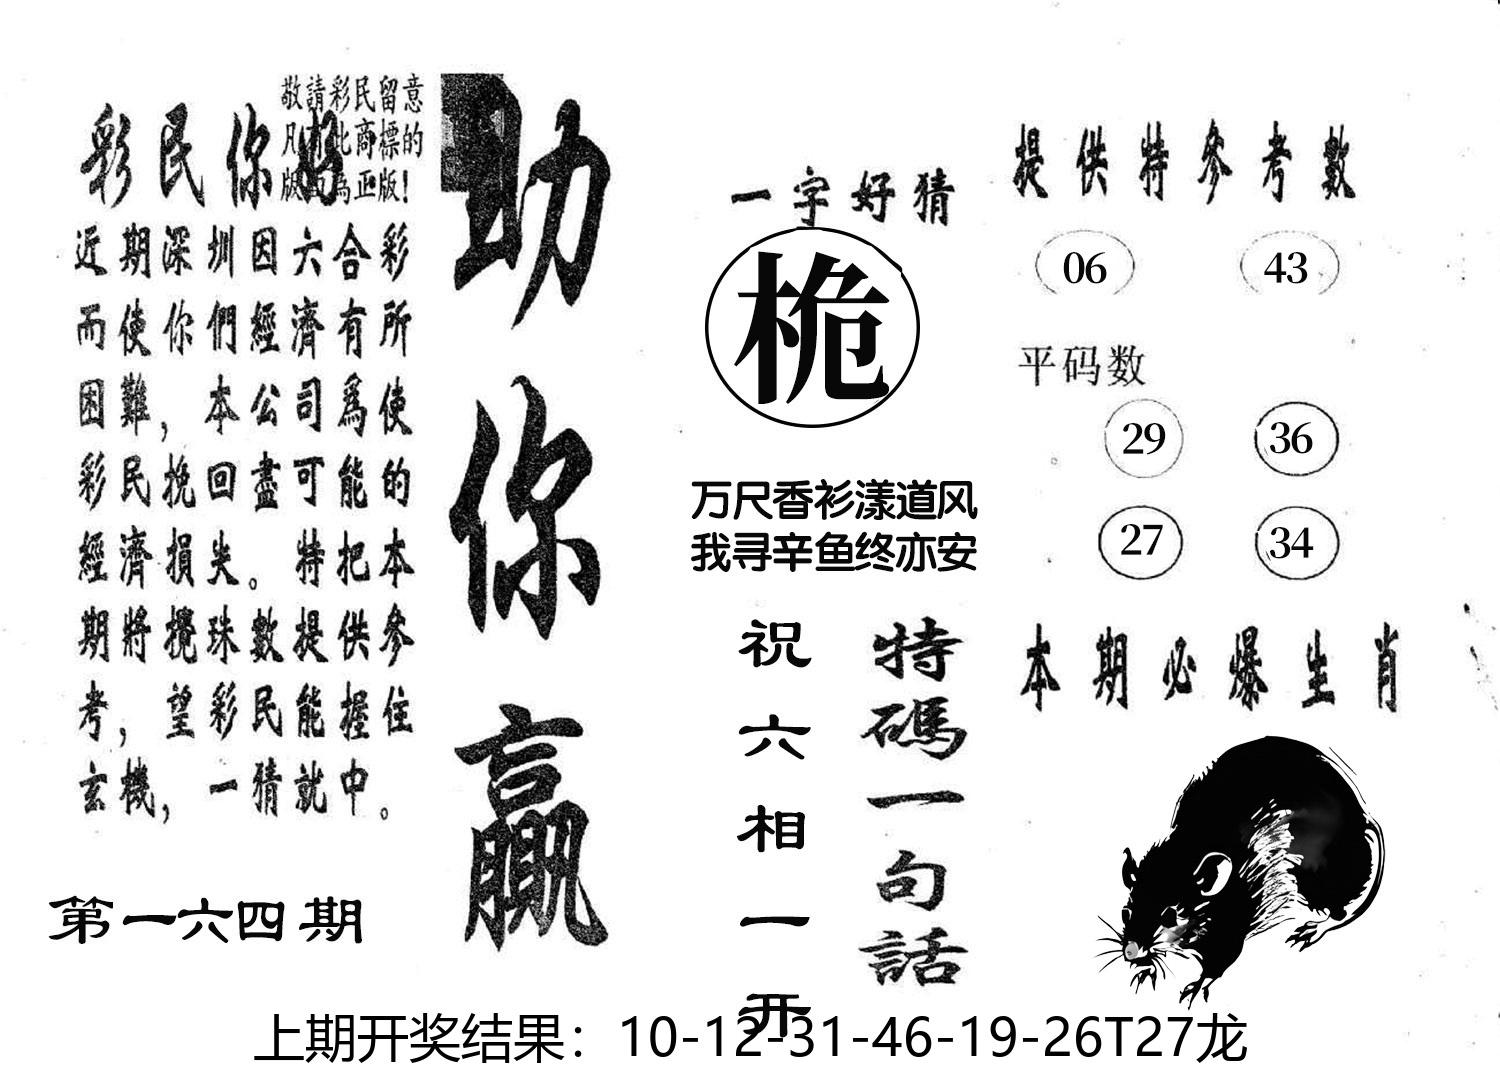 敬請彩民留意
凡有此商標的
版面為正版！
彩民你好
近期深圳因六合彩
而使你們經濟有所
困難，本公司爲使
彩民挽回盡可能的
經濟損失。特把本
期將攪珠數提供參
考，望彩民能握住
玄機，一猜就中。
第一六四期
助你贏
一字好猜
桅
万尺香衫漾道风
我寻辛鱼终亦安
特碼一句話
祝六相一开
提供特参考數
06 43
平码数
29 36
27 34
本期必爆生肖
上期开奖结果：10-12-31-46-19-26T27龙